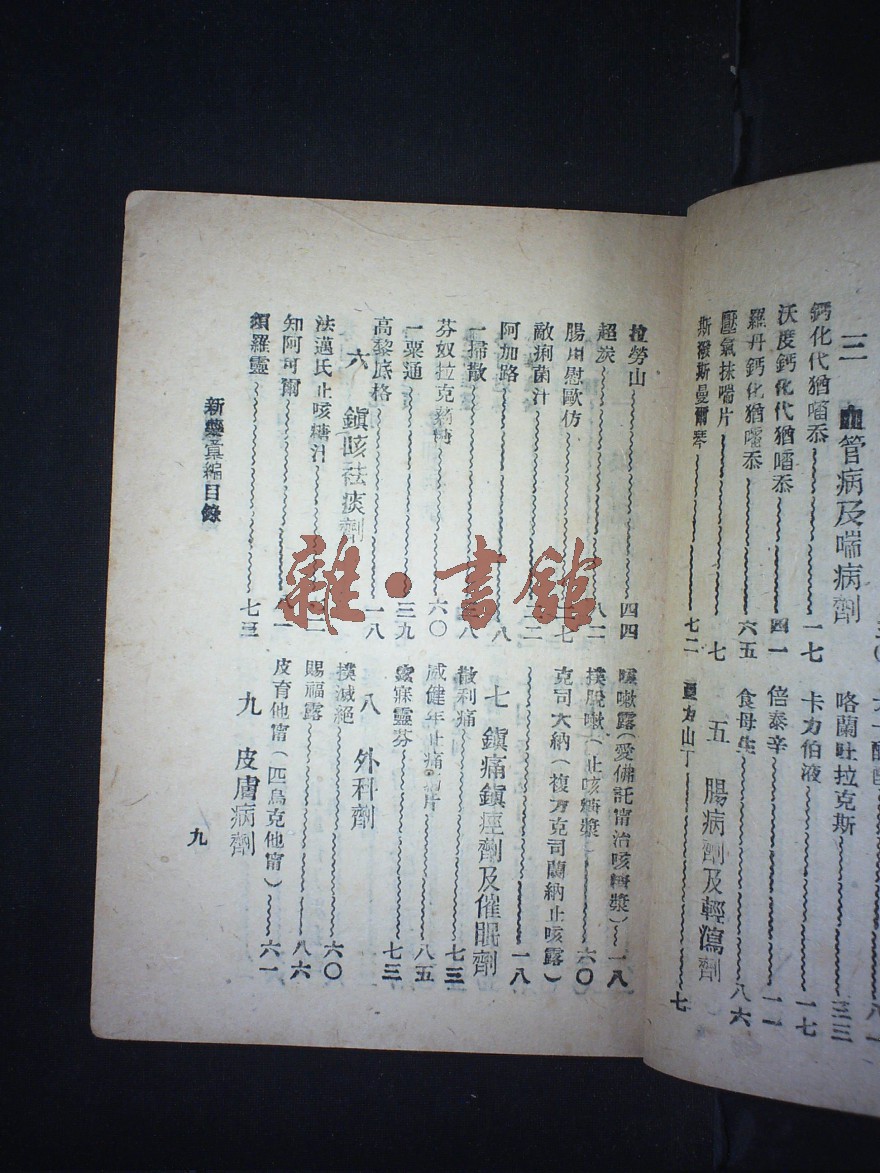 三 血管病及喘病劑
鈣化代猶囓忝 一七
沃度鈣化代猶囓忝 四一
羅丹鈣化猶囓忝 六五
壓氣抹喘片 七
斯潑斯曼爾琴 七二
咯蘭吐拉克斯 三三
卡力伯液 一七
倍泰辛 一一
食母生 八六
五 腸病劑及輕瀉劑
亞力山丁 七
拉勞山 四四
超炭 八二
腸用慰歐仿
敵痢菌汁
阿加路 八
一掃散
芬奴拉克 六〇
一粟通 三九
高黎底格 一八
六 鎮咳祛痰劑
法邁氏止咳糖汁
知阿可爾
須羅靈 七三
咳嗽露(愛佛託甯治咳糖漿) 一八
撲脫嗽(止咳糖漿) 六〇
克司大納(複方克司蘭納止咳露) 一八
七 鎮痛鎮痙劑及催眠劑
散利痛 七三
威健年止痛片 八五
靈寐靈芬 七三
八 外科劑
撲滅絕 六〇
賜福露 八六
皮育他甯(匹烏克他甯) 六一
九 皮膚病劑
新藥彙編目錄
九
雜·書館